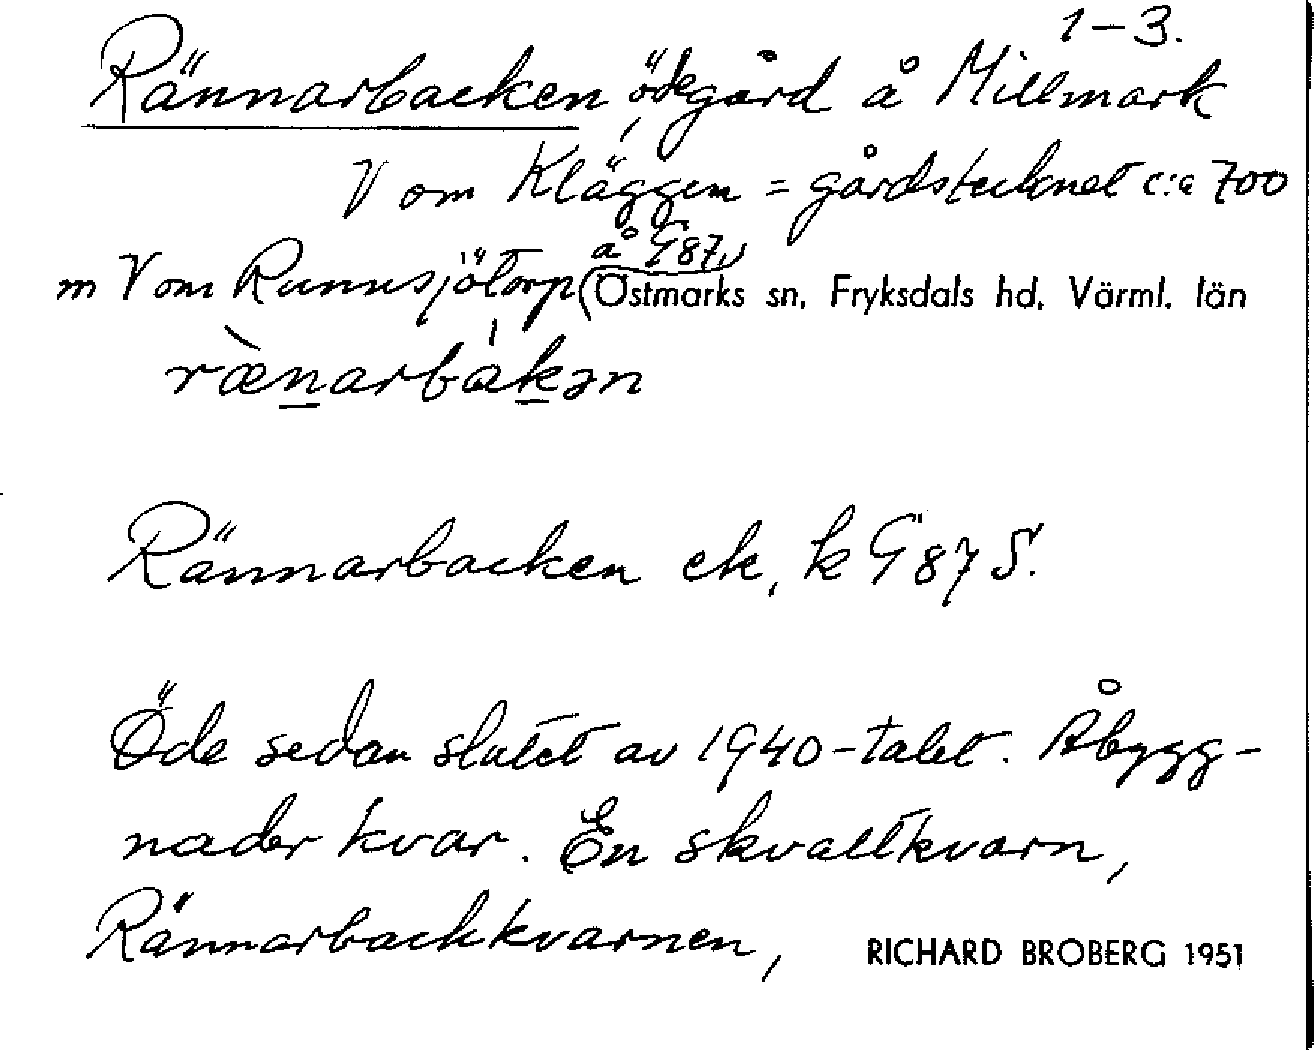 1–3.
Rännarbacken, ödegård å Millmark
V om Kläggen = gårdstecknet c:a 700
m V om Runnsjötorp (å G87.)
Östmarks sn, Fryksdals hd, Värml. län
ræ̀narbákən
Rännarbacken ek, k G 87 S.
Öde sedan slutet av 1940-talet. Åbygg-
nader kvar. En skvaltkvarn,
Rännarbackkvarnen,
RICHARD BROBERG 1951